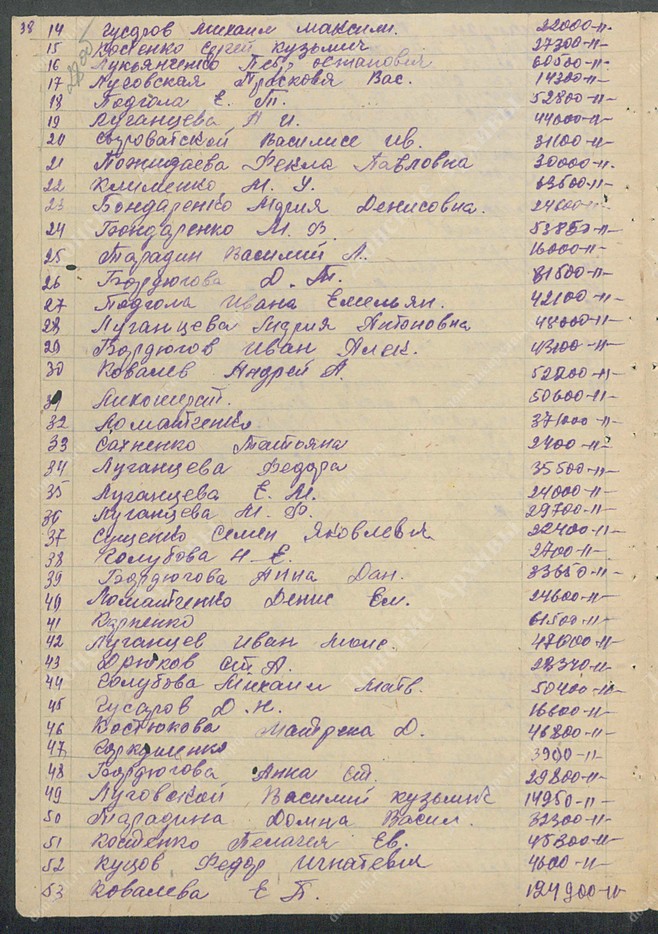 38 14 Гусаров Михаил Максим. 22000-"-
15 Костенко Сергей Кузьмич 27300-"-
16 Лукьянченко Петр Остапович 60500-"-
17 Луговская Прасковья Вас. 14300-"-
18 Подгола Е. П. 52800-"-
19 Луганцева А И. 44000-"-
20 Василисе Ив. 31100-"-
21 Пожидаева Фекла Павловна 30000-"-
22 Клименко М. У. 63500-"-
23 Бондаренко Мария Денисовна. 24600-"-
24 Бондаренко М. В. 53850-"-
25 Тарадин Василий Л. 16000-"-
26 Бардюгова Д. Т. 81500-"-
27 Подгола Ивана Емельян. 42100-"-
28 Луганцева Мария Антоновна 48000-"-
29 Бардюгов Иван Алек. 43100-"-
30 Ковалев Андрей А. 52200-"-
31 50600-"-
32 Ломатченко. 37000-"-
33 Сахненко Татьяна 2400-"-
34 Луганцева Федора 35500-"-
35 Луганцева Е. М. 24000-"-
36 Луганцева М. Ф. 29700-"-
37 Сущенко Семен Яковлевич 22400-"-
38 Голубова Н. Е. 2700-"-
39 Бардюгова Анна Дан. 33650-"-
40 Ломатченко Денис Ем. 24600-"-
41 Карпенко 61500-"-
42 Луганцев Иван Моис. 47600-"-
43 Дрюков Ст. А. 28340-"-
44 Голубова Михаил Матв. 50400-"-
45 Гусаров Д. Н. 16600-"-
46 Костюкова Матрена Д. 46800-"-
47 3900-"-
48 Бардюгова Анна Ст. 29800-"-
49 Луговской Василий Кузьмич 14950-"-
50 Тарадина Домна Васил. 32300-"-
51 Костенко Пелагия Ев. 45300-"-
52 Куцов Федор Игнатевич 4600-"-
53 Ковалева Е П. 124900-"-